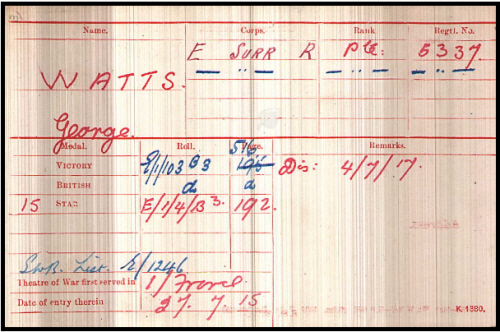 Name. Corps. Rank Regtl. No.
E SURR R Pte: 5337.
WATTS. — " — — " — — " —
George.
Medal. Roll. Page. Remarks.
516
VICTORY E/1/103 B3 195 Dis: 4/7/17.
BRITISH do do
15 STAR E/1/4/B3. 192.
SWB. List. E/1246
Theatre of War first served in 1) France
Date of entry therein 27. 7. 15
K. 1380.